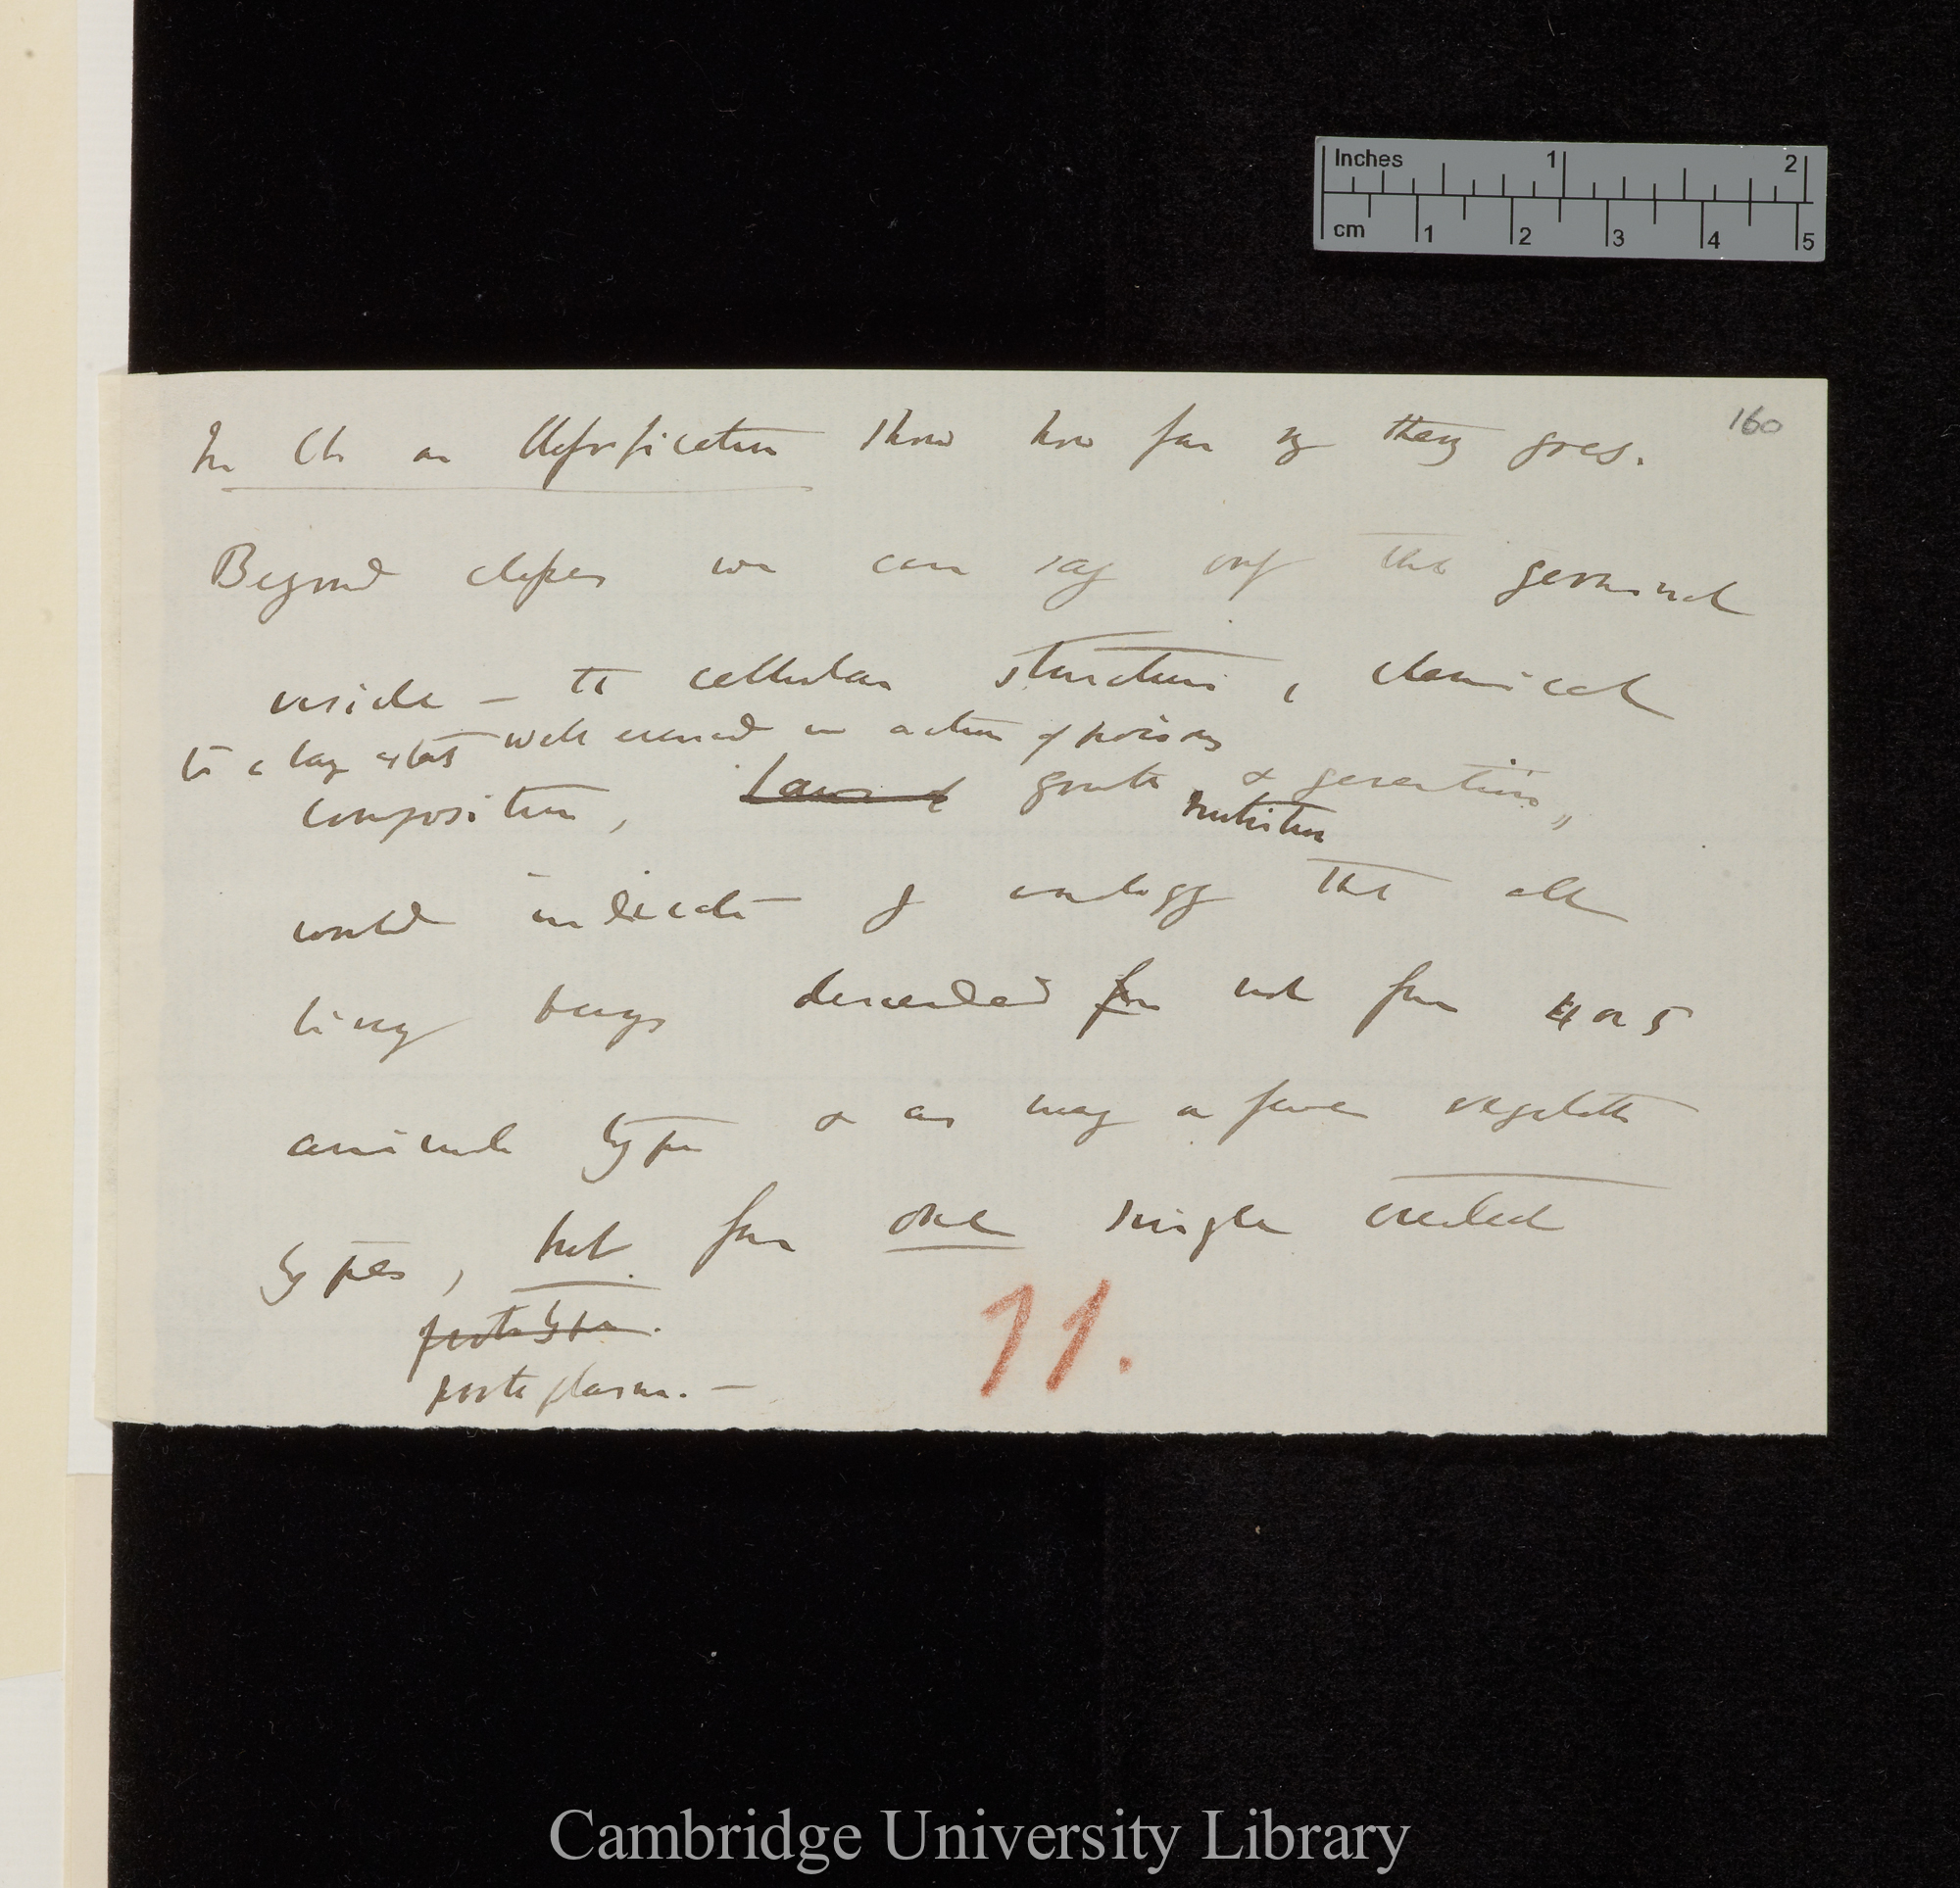 Inches 1 2
cm 1 2 3 4 5
160
In Ch on Classification show how far my theory goes.
Beyond classes we can say only that germinal
vesicle – the cellular structure, chemical
well in action of poisons
composition, Laws of growth & generation,
nutrition
would indicate by analogy that all
living beings descended from not from 4 or 5
animal type & as many or fewer vegetable
types, but from one single created
prototype.
protoplasm. —
71.
Cambridge University Library